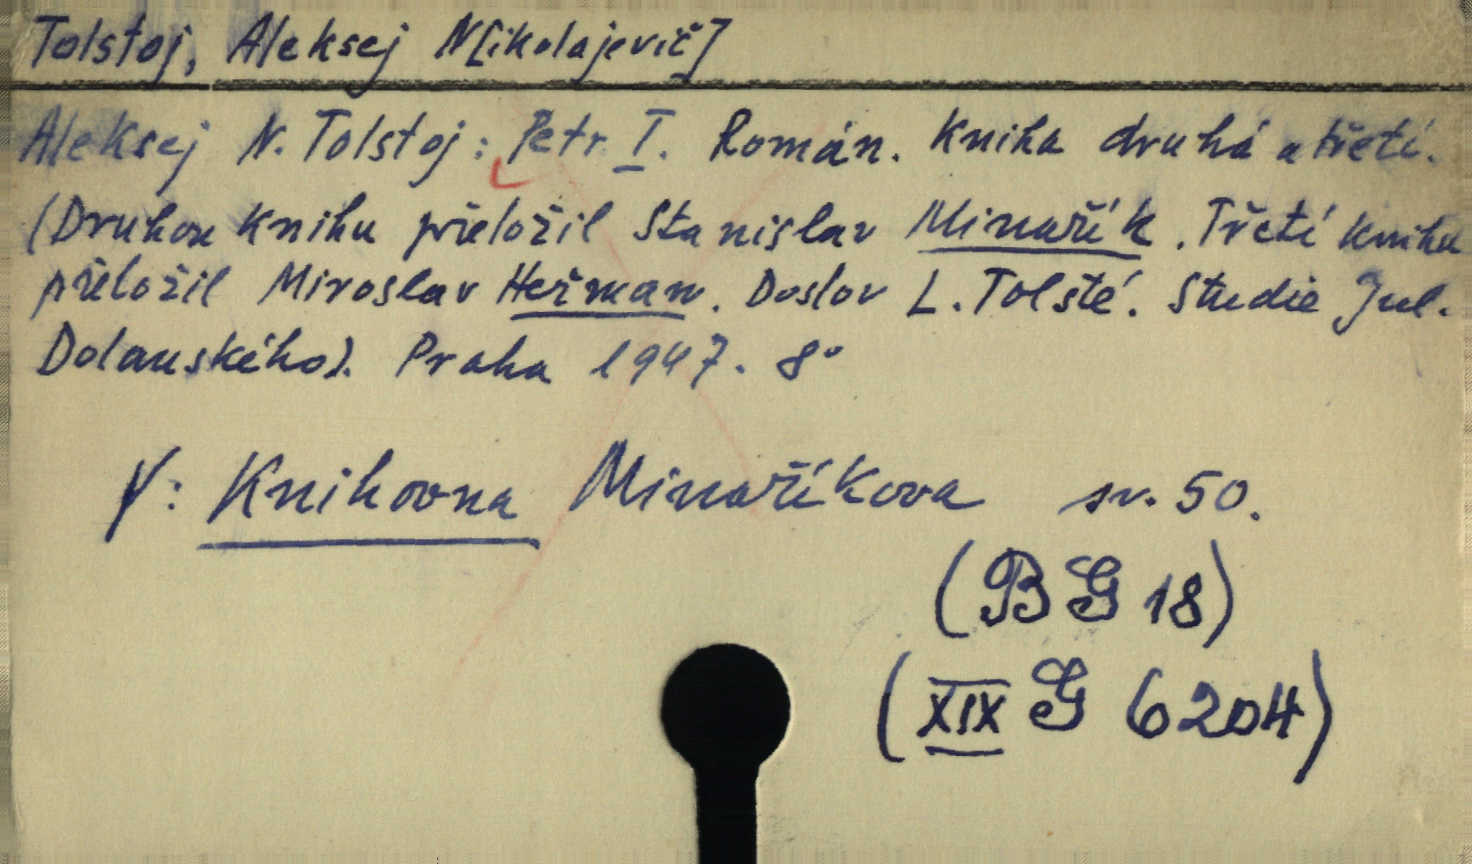 Tolstoj, Aleksej N[ikolajevič]
Aleksej N. Tolstoj: Petr I. Román. Kniha druhá a třetí.
(Druhou knihu přeložil Stanislav Minařík. Třetí knihu
přeložil Miroslav Heřman. Doslov L. Tolsté. Studie Jul.
Dolanského). Praha 1947. 8°
V: Knihovna Minaříkova sv. 50.
(BG 18)
(XIX G 6204)